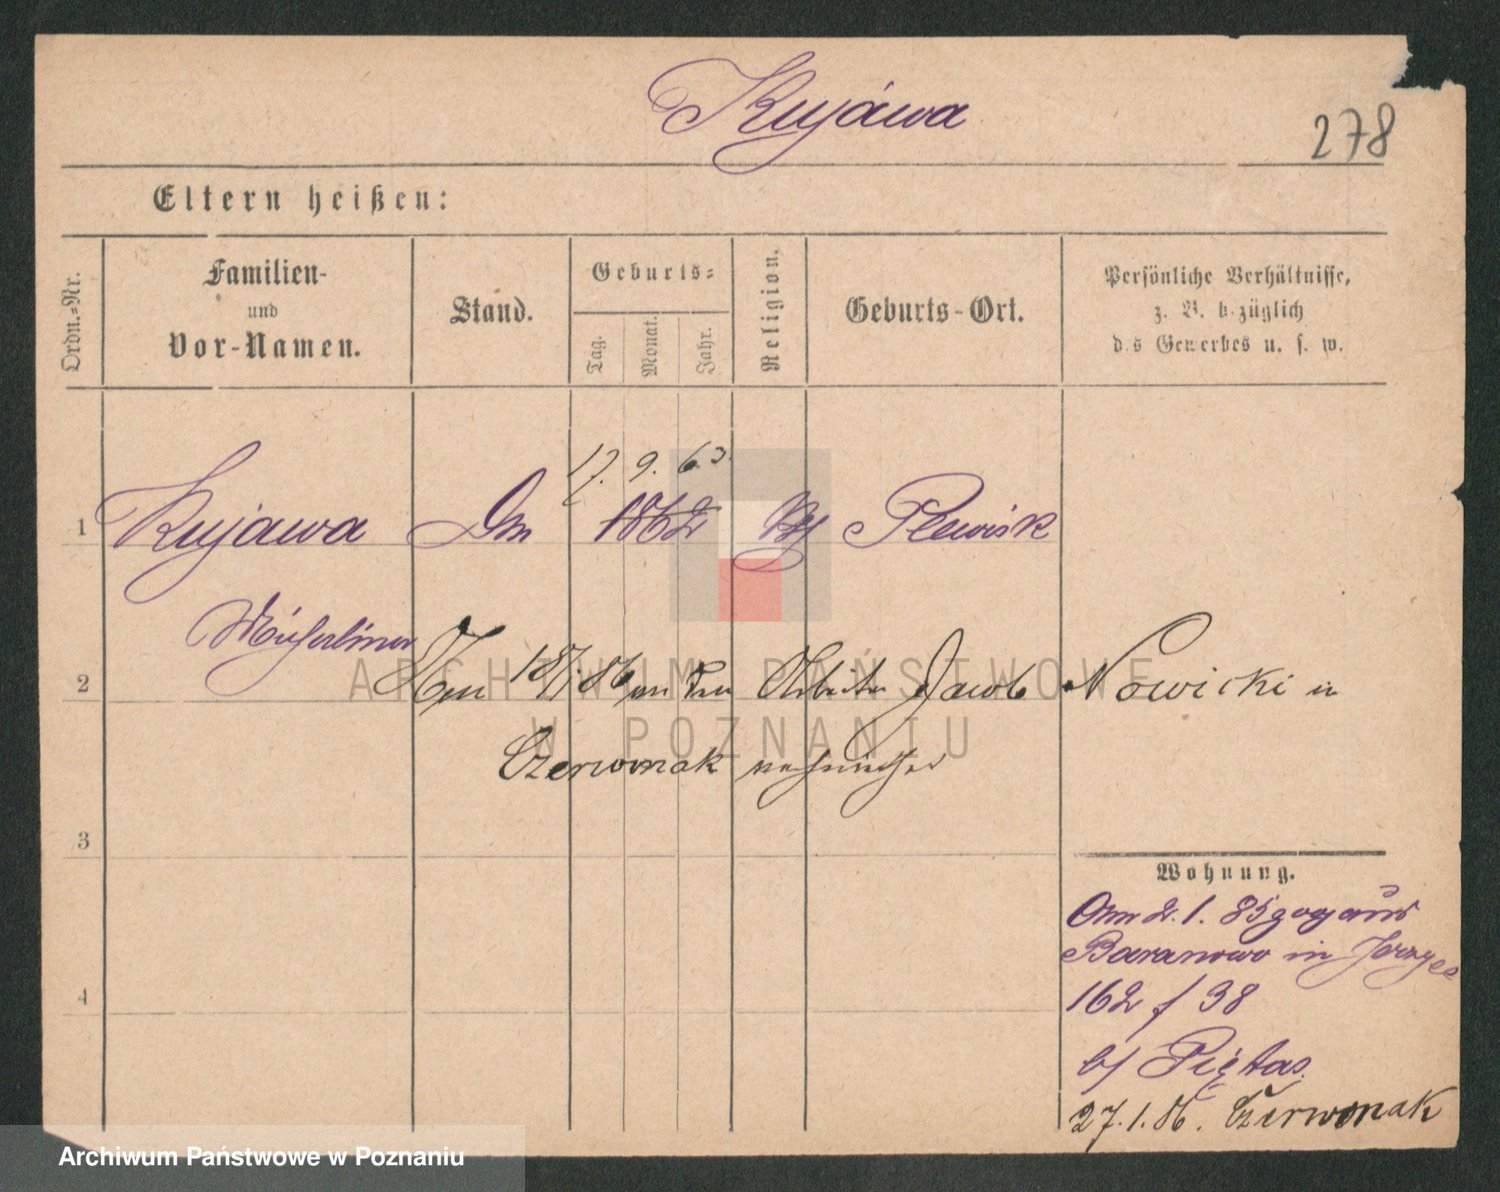 Kujáwa
278
Eltern heißen:
Ordn.-Nr.
Familien-
und
Vor-Namen.
Stand.
Geburts-
Tag.
Monat.
Jahr.
Religion.
Geburts-Ort.
Persönliche Verhältnisse,
z. B. bezüglich
des Gewerbes u. s. w.
17. 9. 63.
1 Kujawa 1862 Plewisk
2 Am in den Arbeiter Jacob Nowicki in
Czerwonak
3
Wohnung.
Am 2. 1. 85 zog aus
Baranowo in
162 / 38
b/ Piętas.
4
27. 1. 86. Czerwonak
ARCHIWUM PAŃSTWOWE
W POZNANIU
Archiwum Państwowe w Poznaniu